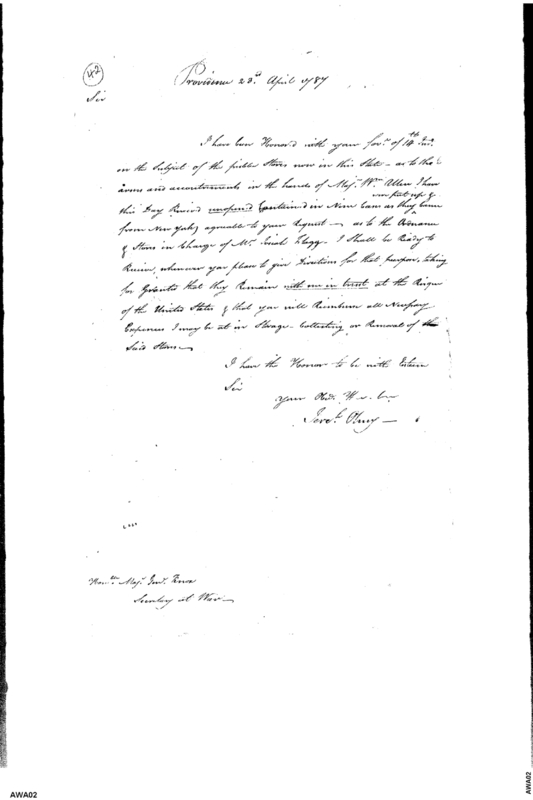 42
Providence 23d. April 1787
Sir
I have been Honor'd with your favr. of 14th Inst.
on the Subject of the public Stores now in this State – as to the
arms and accoutrements in the hands of Majr. Wm. Allen I have
were put up &
this Day Receiv'd unopened & contained in Nine Cases as they came
from New York, agreeable to your Request – as to the Ordnance
& Stores in Charge of Mr. I Shall be Ready to
Receive, whenever you please to give Directions for that purpose, taking
for Granted that they Remain with me in trust at the Risque
of the United States & that you will Reimburse all Necessary
Expences I may be at in Storage – Collecting or Removal of the
Said Stores –
I have the Honor to be with Esteem
Sir
your Obdt. H. Ser
Jereh. Olney –
Honble. Majr. Genl. Knox
Secretary at War –
AWA02
AWA02